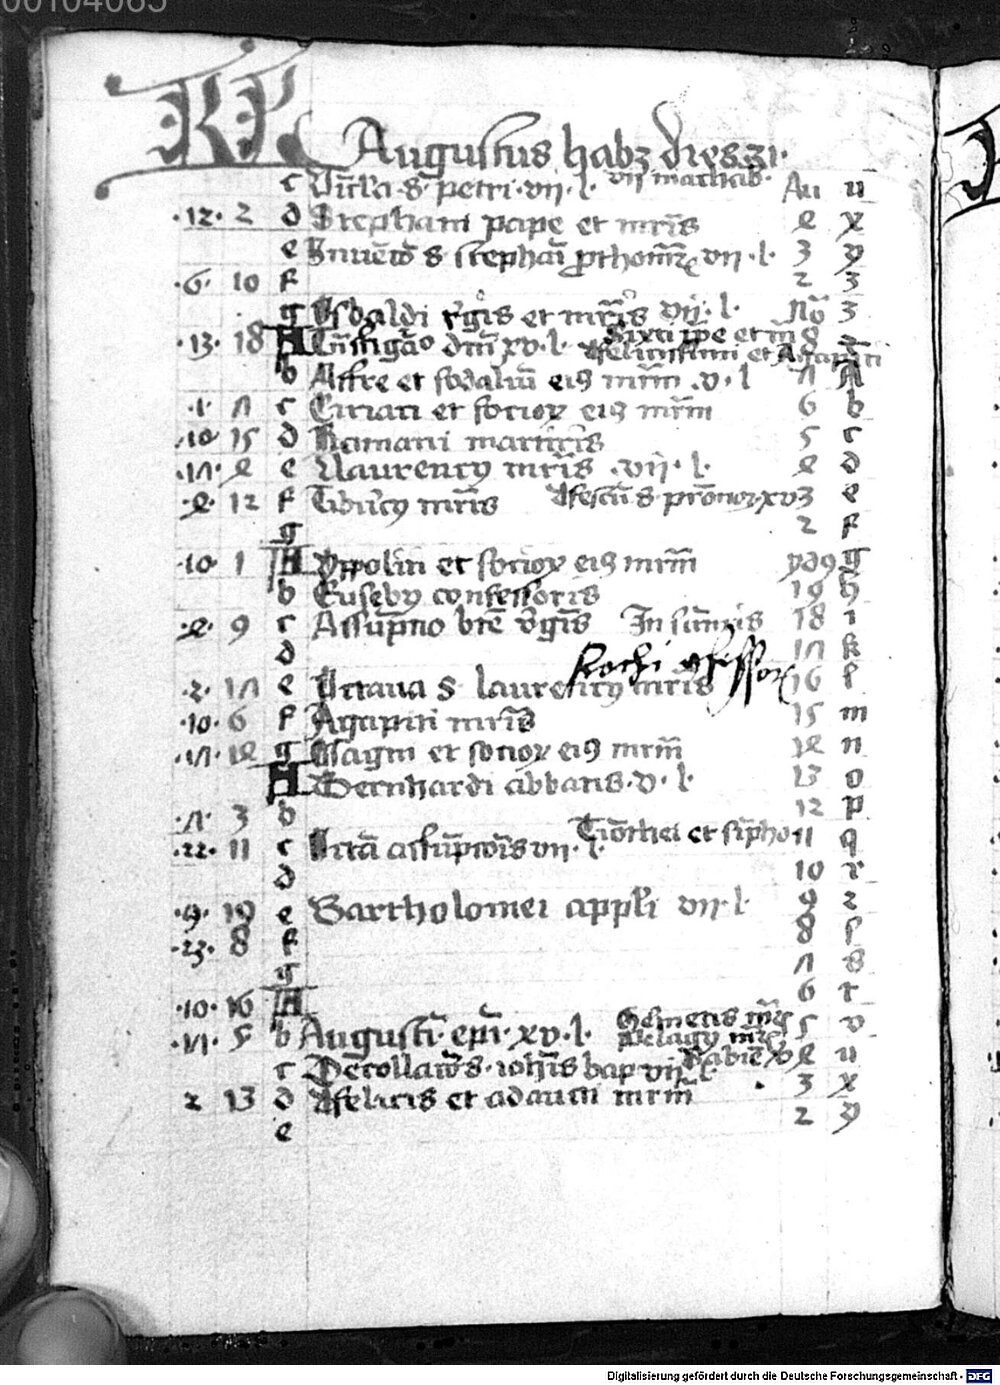 00104065
KL Augustus habz dies 31.
c Vincla s. petri vij l. vij machab. Au u
12 2 d Stephani pape et mris e x
e Inuẽcio s stephaĩ prothomr̃ vij l. 3 y
6 10 f 2 3
g Osbaldi rgis et mris vij l. No 3
13 18 A Trñsfigão dñi xv l. Sixti ppe et m 8 z
felicissimi et Agapiti
b Affre et sodaliũ eiꝯ mrm v l Λ A
1 Λ c Ciriaci et socioꝝ eiꝯ mrm 6 b
10 15 d Romani martiris 5 c
e e Laurencij mris vij l. e d
e 12 f Tiburcij mris festũ s. pronor xv 3 e
g 2 f
10 1 A Ypoliti et socioꝝ eiꝯ mrm ydꝯ g
b Eusebij confessoris 19 h
e 9 c Assũpcio btẽ vgĩs In sũmis 18 i
d Rochi ɔfessoꝝ 1Λ k
2 1Λ e Octaua s laurencij mris 16 l
10 6 f Agapiti mris 15 m
1e g Magni et socioꝝ eiꝯ mrm 1e n
A Bernhardi abbatis v l. 13 o
Λ 3 b 12 p
22 11 c Octã assũpcõis vij l. Timothei et simpho 11 q
d 10 r
9 19 e Bartholomei appli vij l 9 z
23 8 f 8 s
g Λ s
10 16 A 6 t
5 b Augusti epi xv l. Hermetis mris 5 v
Pelagij mris
c Decollacõis iohis bap vij l. Sabine v e u
2 13 d Felicis et adaucti mrm 3 x
e 2 y
Digitalisierung gefördert durch die Deutsche Forschungsgemeinschaft - DFG